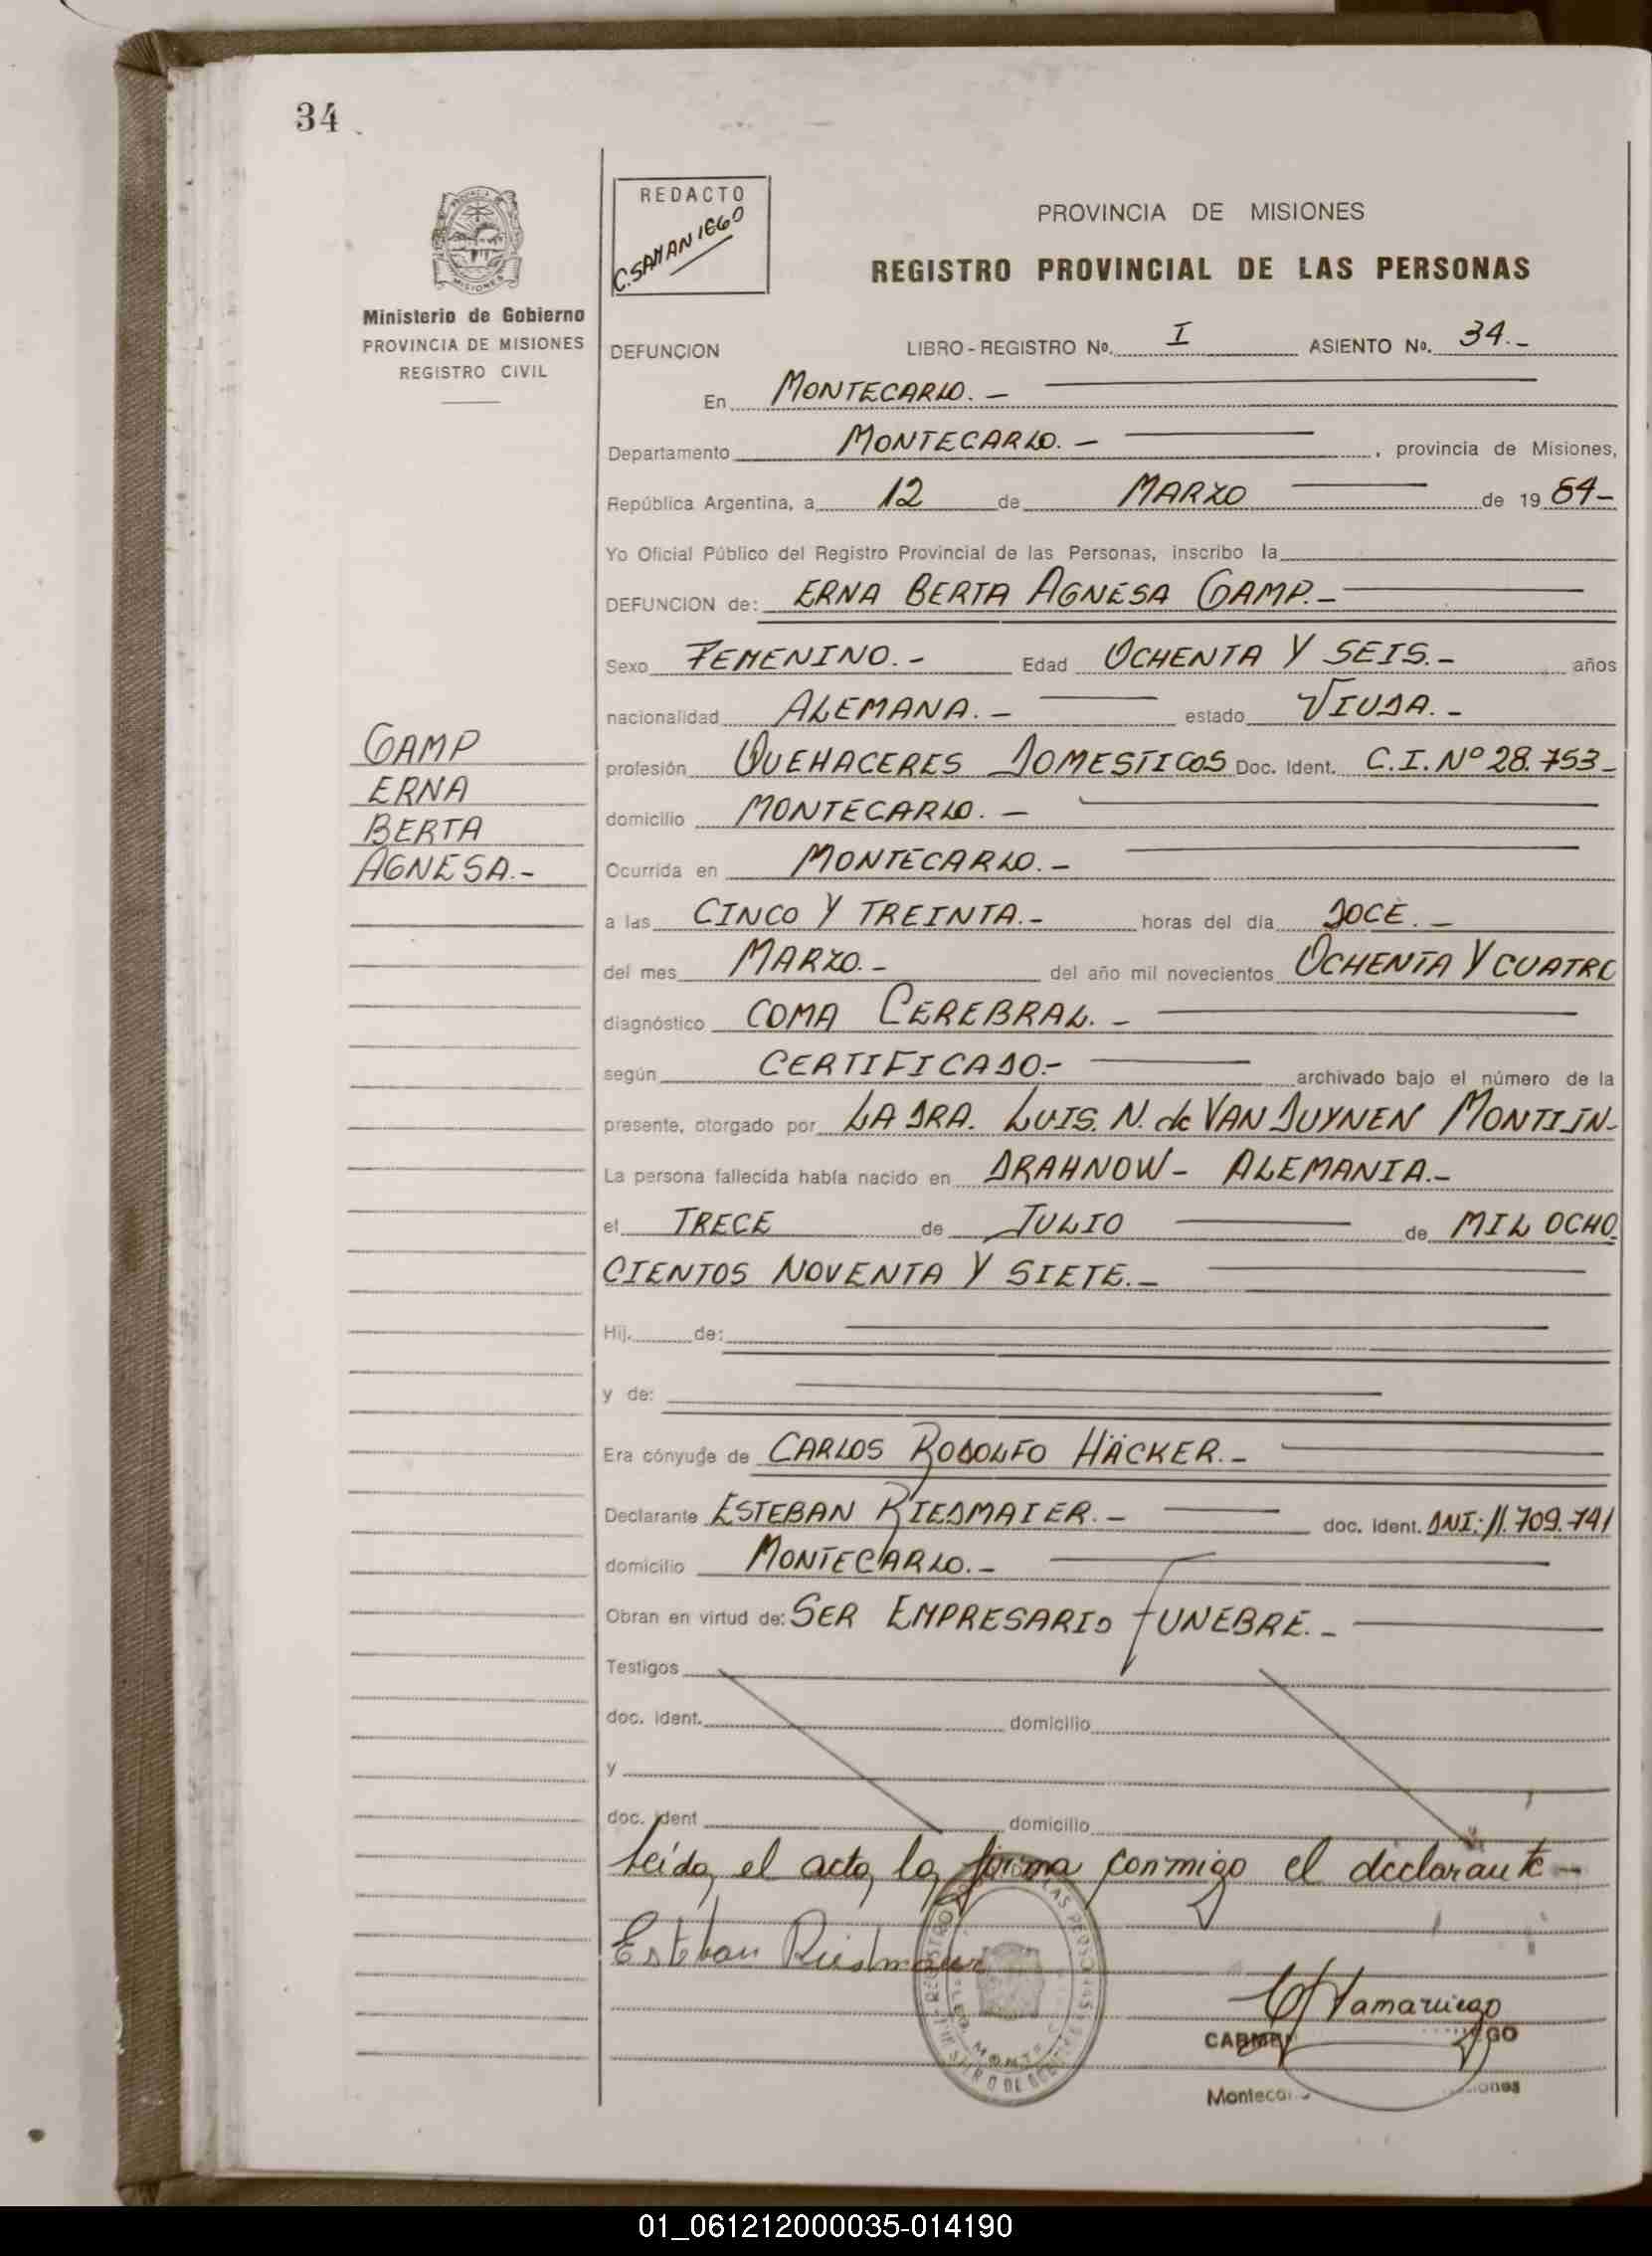 34
REDACTO
C. SAMANIEGO
PROVINCIA DE MISIONES
REGISTRO PROVINCIAL DE LAS PERSONAS
Ministerio de Gobierno
PROVINCIA DE MISIONES
REGISTRO CIVIL
DEFUNCION LIBRO-REGISTRO No. I ASIENTO No. 34.-
En MONTECARLO.-
Departamento MONTECARLO.- , provincia de Misiones,
República Argentina, a 12 de MARZO de 19 84-
Yo Oficial Público del Registro Provincial de las Personas, inscribo la
DEFUNCION de: ERNA BERTA AGNESA GAMP.-
Sexo FEMENINO.- Edad OCHENTA Y SEIS.- años
nacionalidad ALEMANA.- estado VIUDA.-
GAMP
ERNA
BERTA
AGNESA.-
profesión QUEHACERES DOMESTICOS Doc. Ident. C.I. Nº 28.753-
domicilio MONTECARLO.-
Ocurrida en MONTECARLO.-
a las CINCO Y TREINTA.- horas del día DOCE.-
del mes MARZO.- del año mil novecientos OCHENTA Y CUATRO
diagnóstico COMA CEREBRAL.-
según CERTIFICADO.- archivado bajo el número de la
presente, otorgado por LA DRA. LUIS. N. de VAN DUYNEN MONTIJN-
La persona fallecida había nacido en DRAHNOW- ALEMANIA.-
el TRECE de JULIO de MIL OCHO
CIENTOS NOVENTA Y SIETE.-
Hij. de:
y de:
Era cónyuge de CARLOS RODOLFO HÄCKER.-
Declarante ESTEBAN RIEDMAIER.- doc. Ident. DNI: 11.709.741
domicilio MONTECARLO.-
Obran en virtud de: SER EMPRESARIO FUNEBRE.-
Testigos
doc. ident. domicilio
y
doc. ident domicilio
Leída el acta, la firma conmigo el declarante-
Esteban Riedmaier
01_061212000035-014190